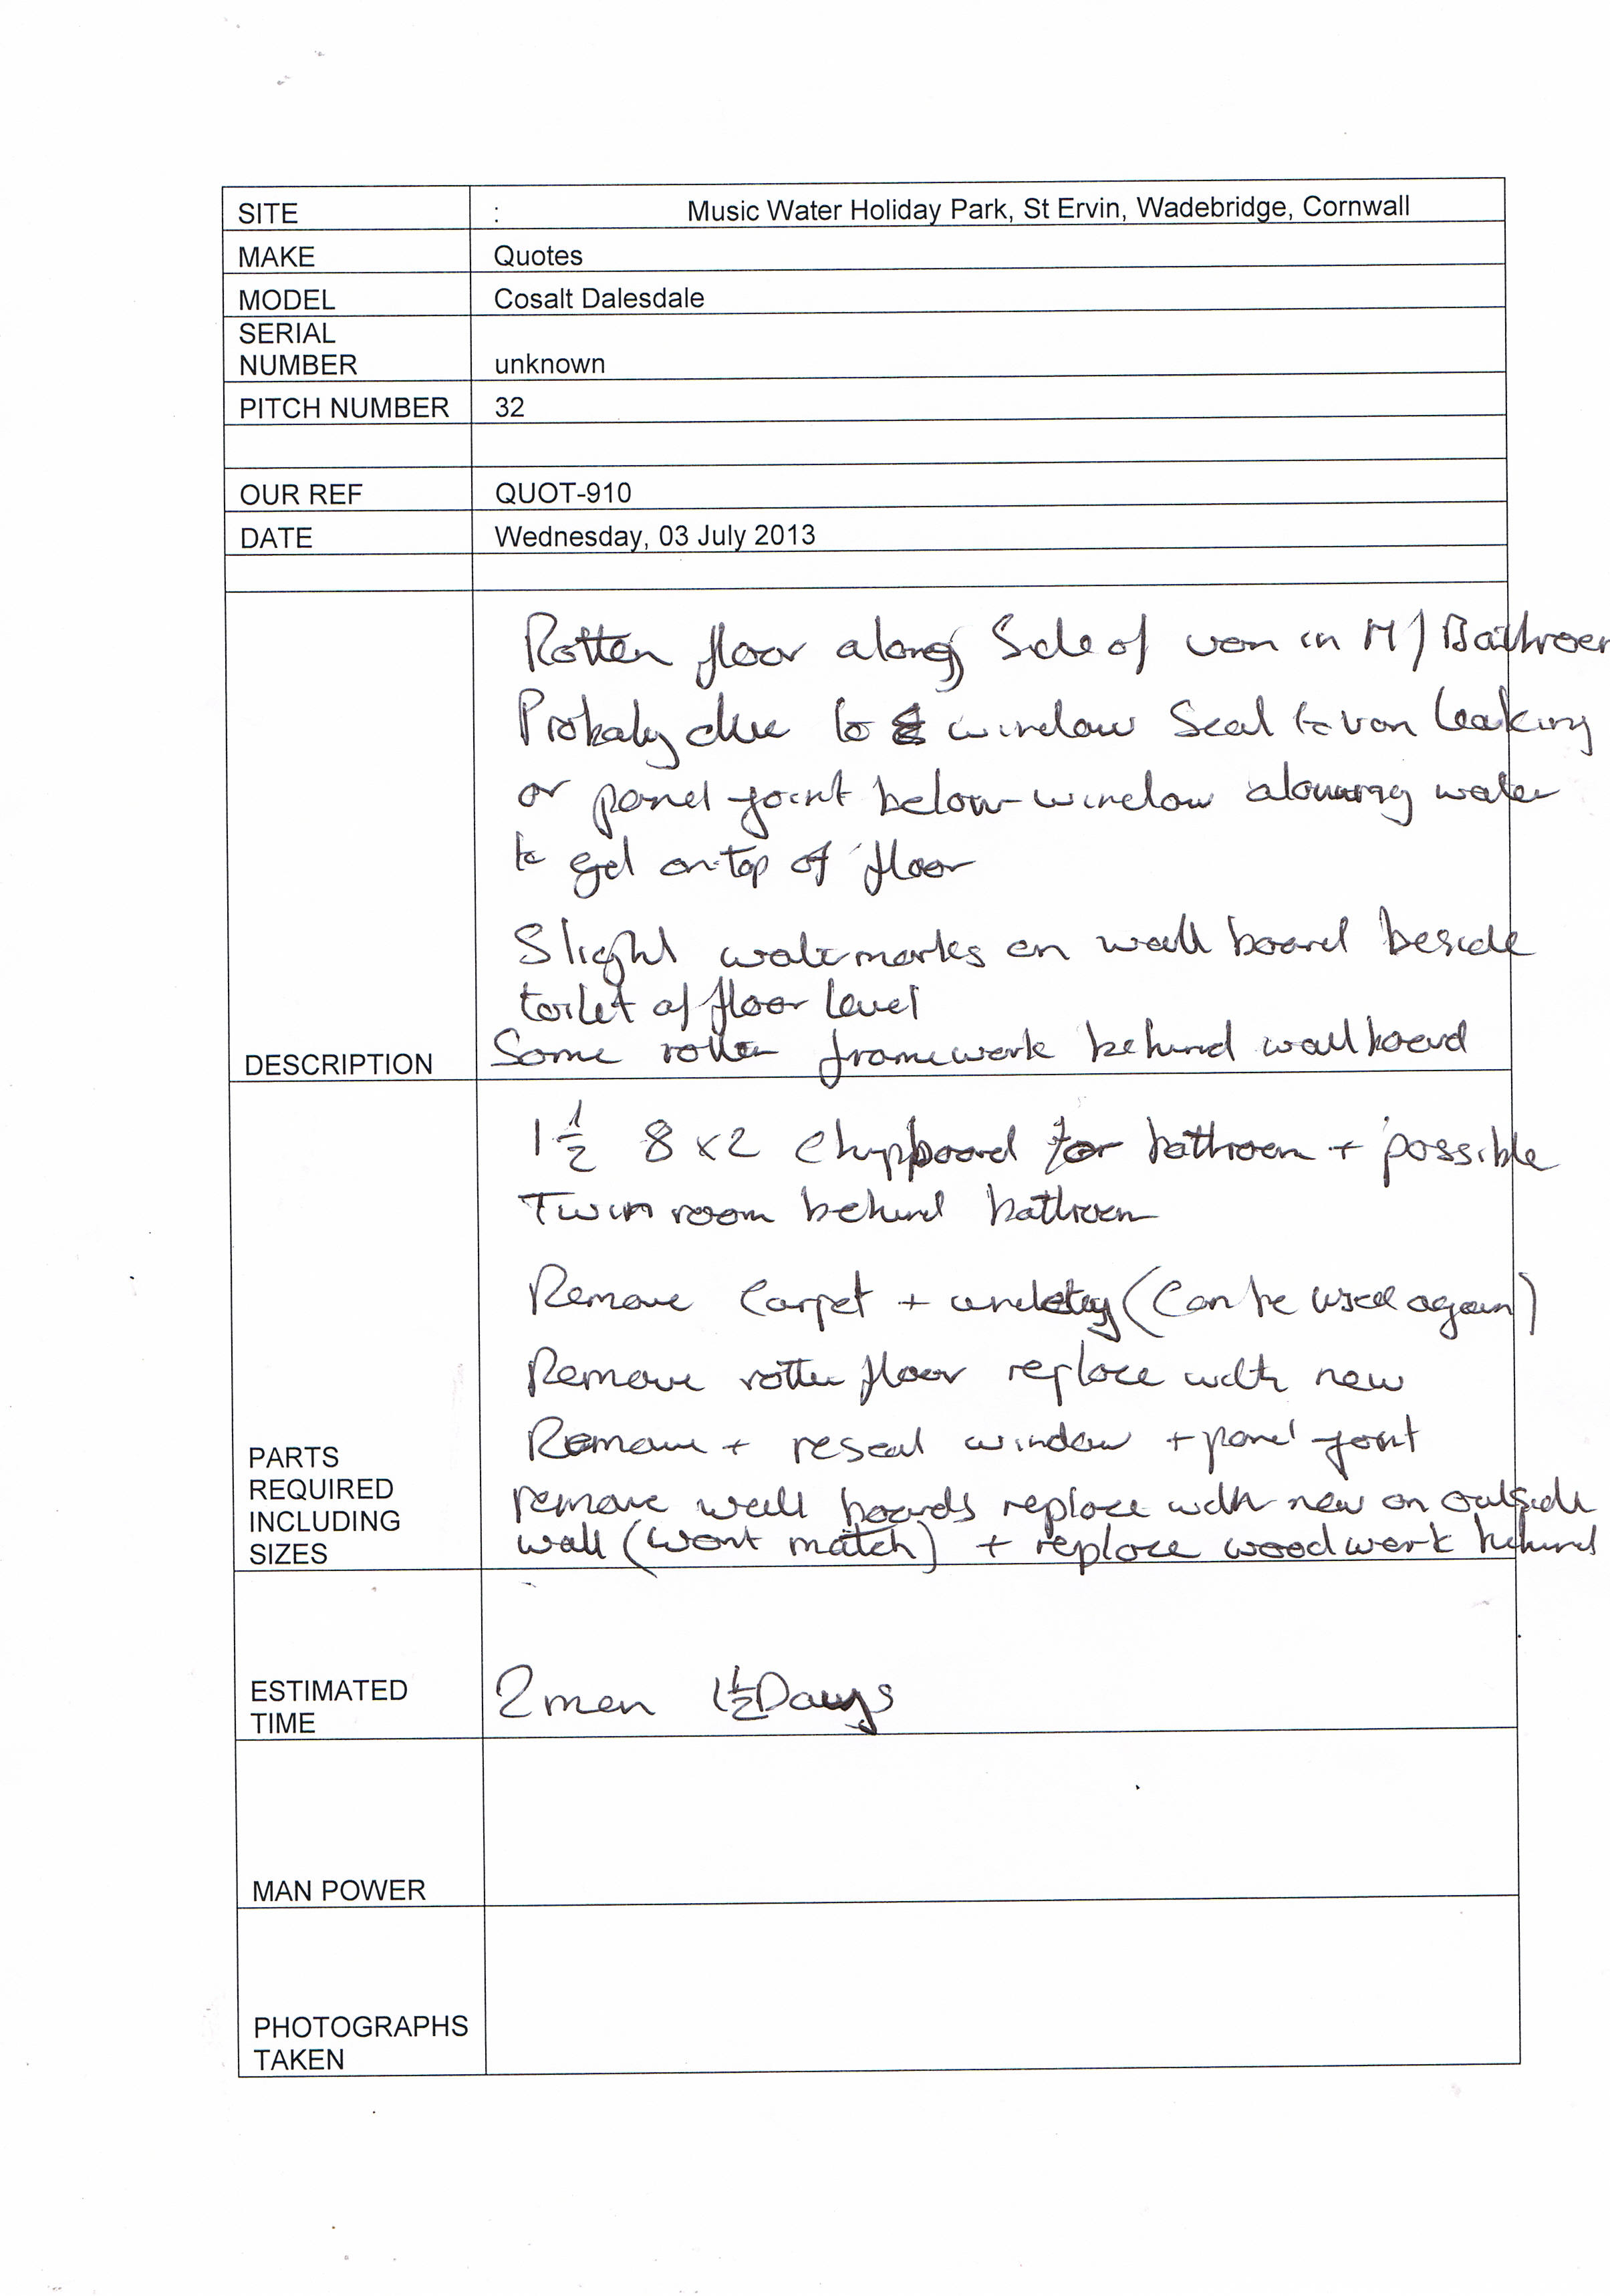 SITE : Music Water Holiday Park, St Ervin, Wadebridge, Cornwall
MAKE Quotes
MODEL Cosalt Dalesdale
SERIAL
NUMBER unknown
PITCH NUMBER 32
OUR REF QUOT-910
DATE Wednesday, 03 July 2013
Rotten floor along Side of van in M/Bathroom
Probaly due to window Seal to van leaking
or panel joint below window alowing water
to get on top of floor
Slight watermarks on wall board beside
toilet at floor level
DESCRIPTION Some rotten framework behind wallboard
1 1/2 8 x 2 Chipboard for bathroom + possible
Twin room behind bathroom
Remove Carpet + underlay (Can be used again)
Remove rotten floor replace with new
Remove + reseal window + panel joint
remove wall boards replace with new on outside
wall (wont match) + replace woodwork behind
PARTS
REQUIRED
INCLUDING
SIZES
ESTIMATED
TIME 2 men 1 1/2 Days
MAN POWER
PHOTOGRAPHS
TAKEN